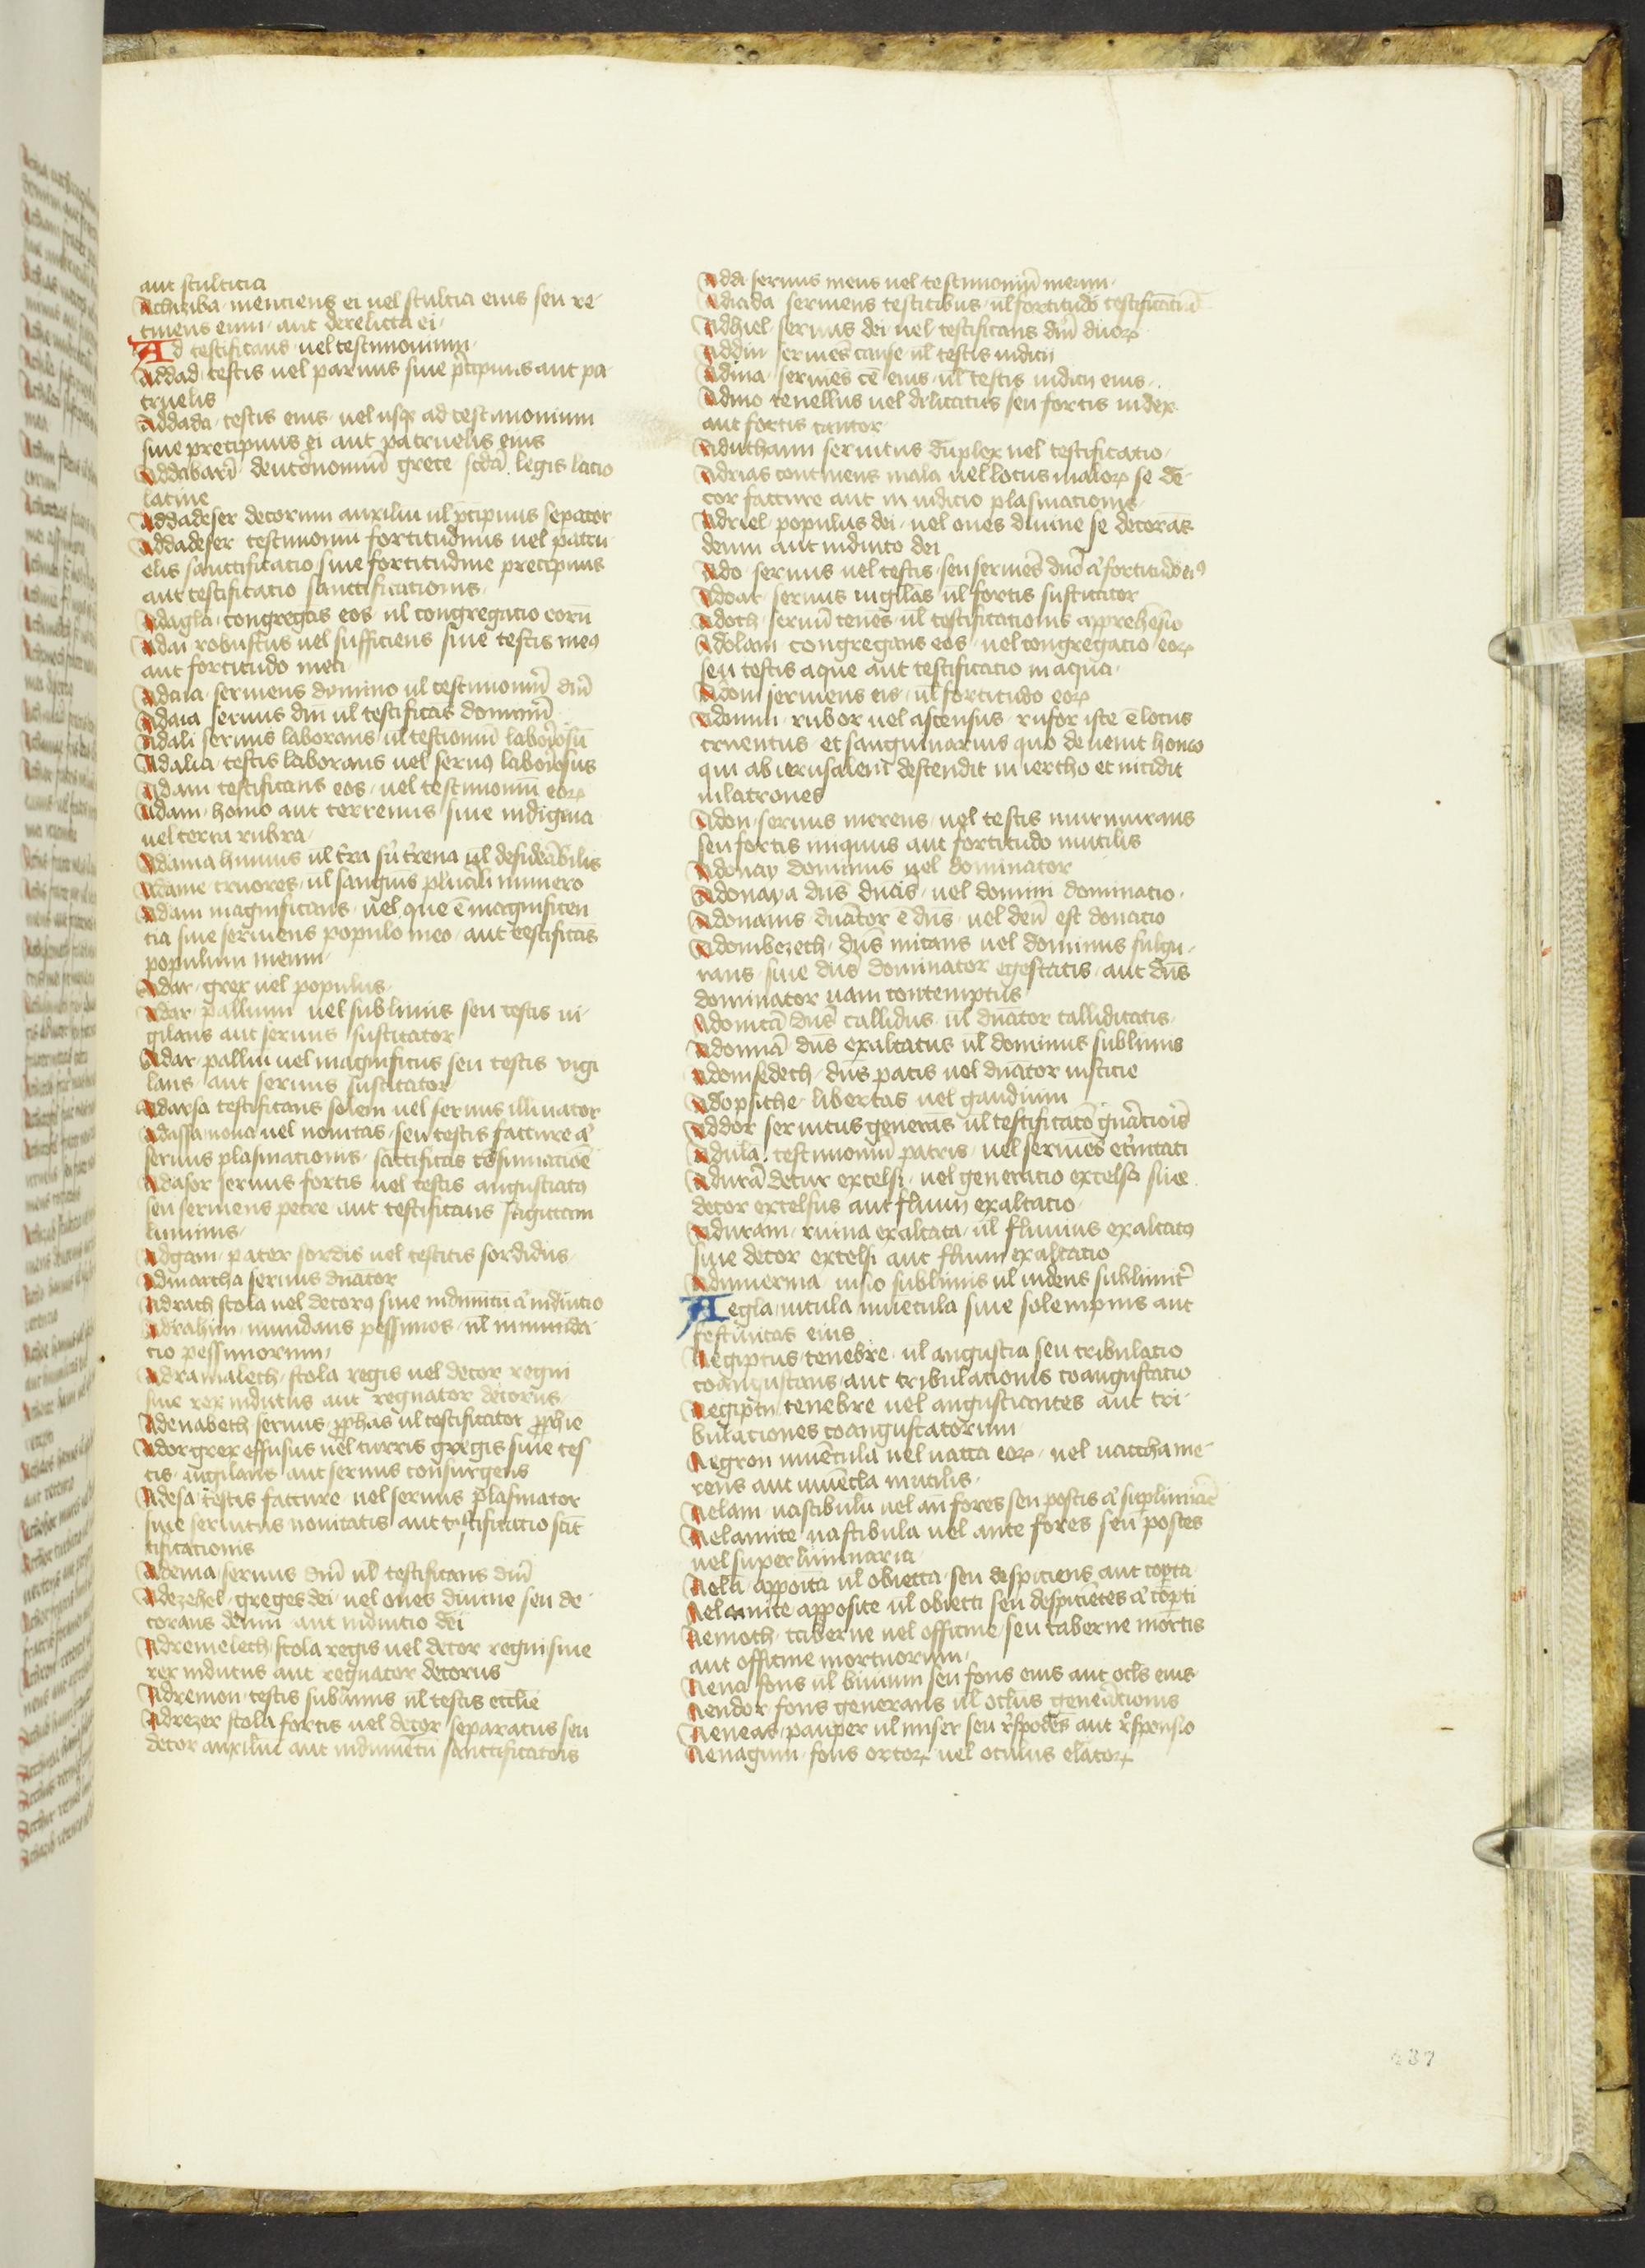 aut stulticia
Achziba · menciens ei uel stulticia eius seu re-
tinens eum · aut derelicta ei ·
Ad testificans · uel testimonium ·
Addad · testis uel paruus siue p̄cipuus aut pa-
truelis
Addada · testis eius · uel usq₃ ad testimonium
siue precipuus ei aut patruelis eius
Addabarī · deutōnomiū grece scdā legis lacio
latine
Addadeser decorum auxiliū ul̄ p̄cipuus sepator
Addadeser testimoniū fortitudinis uel patru
elis sanctificatio siue fortitudine precipuus
aut testificatio sanctificationis ·
Adagla · congregās eos · ul̄ congregatio eorū
Adai robustus uel sufficiens siue testis meꝰ
aut fortitudo mea
Adaia · seruiens domino ul̄ testimoniū dn̄i
Adaia seruus dn̄i ul̄ testificās dominū
Adali seruus laborans · ul̄ testioniū laboriosū
Adalia · testis laborans uel seruꝰ laboriosus
Adam testificans eos · uel testimoniū eoꝝ
Adam · homo aut terrenus · siue indigena
uel terra rubra ·
Adama humus ul̄ t̄ra siū t̄rena ul̄ desiderabilis
Adame cruores · ul̄ sanguīs plurali numero
Adam magnificans · uel que ē magnificen
tia siue seruiens populo meo · aut testificās
populum meum ·
Adar · grex uel populus ·
Adar · pallium uel sublimis seu testis ui-
gilans aut seruus suscitator
Adar · palliū uel magnificus seu testis vigi
lans · aut seruus suscitator
Adarsa testificans solem uel seruus illuminator
Adassa · noua uel nouitas · seu testis facture a᷎
seruus plasmationis · sāctificās cōsumacioē
Adasor seruus fortis uel testis angustiatꝰ
seu seruiens petre aut testificans sagittam
luminis ·
Adgam · pater sordis uel testitis sordidus ·
Admartha seruus dn̄ator
Adrach stola uel decorꝰ siue indumētū a᷎ indutio
Adrahim · mundans pessimos · ul̄ inmunda
tio pessimorum ·
Adramalech · stola regis uel decor regni
siue rex indutus aut regnator decorus ·
Adenabeth seruus · ꝓphās ul̄ testificator ꝓphie
Ador grex effusus uel turris gregis siue tes
tis · uigilans · aut seruus consurgens
Adesa · testis facture · uel seruus plasmator
siue seruitus nouitatis aut testificatio sc̄t
tificationis
Adema · seruus dn̄i ul̄ testificans dn̄i
Adezehel · greges dei · uel oues diuine seu de-
corans deum · aut indutio dei
Adremelech · stola regis uel decor regni siue
rex indutus aut regnator decorus
Adremon · testis sublimis ul̄ testis ecclīe
Adrezer stola fortis uel decor separatus seu
decor auxiliū aut indumētū sanctificatōis
Addi · seruus meus uel testimoniū meum ·
Adiada seruiens testitibus · ul̄ fortitudo testificatiuā
Adhiel · seruus dei · uel testificans dn̄i diuoꝝ
Addin seruiēs cause · ul̄ testis iudicij
Adina · seruiēs cē eius · ul̄ testis iudicij eius ·
Adino tenellus uel delicatus seu fortis iudex
aut fortis cantor
Adutham seruitus duplex uel testificatio ·
Adrias continens mala uel locus maloꝝ se de-
cor facture aut in iudicio plasmationis ·
Adriel · populus dei · uel oues diuine se decorās
deum aut indutio dei
Ado · seruus uel testis · seu seruiēs dn̄o a᷎ fortitudo eiꝰ
Adoar · seruus uigilās ul̄ fortis suscitator
Adoth · seruū tenēs · ul̄ testificationis apprehēsio
Adolam congregans eos · uel congregatio eoꝝ
seu testis aque aut testificatio in aqua ·
Adom seruiens eis · ul̄ fortitudo eoꝝ
Adomim · rubor uel ascensus · rufor iste ē locus
cruentus · et sanguinarius quo deuenit homo
qui ab ierusalem descendit in iericho et incidit
in latrones
Adon · seruus merens · uel testis murmurans
seu fortis iniquus aut fortitudo inutilis
Adonay dominus uel dominator
Adonaya dn̄s dn̄ās · uel domini dominatio ·
Adonams dn̄ator ē dn̄s · uel deū est donatio
Adonibezech · dn̄s micans uel dominus fulgu-
rans · siue dn̄s dominator egestatis · aut dn̄s
dominator uani contemptus
Adonicā dn̄s callidus · ul̄ dn̄ator calliditatis ·
Adonirā dn̄s exaltatus ul̄ dominus sublimis
Adonisedech · dn̄s pacis uel dn̄ator iusticie
Adopsithe · libertas uel gaudium
Addor seruitus generās ul̄ testificatō gn̄ationis
Adula · testimoniū patris · uel seruiēs et̄nitati
Adurā decur excelsi · uel generatio excelsa siue
decor excelsus aut fluuij exaltatio ·
Aduram · ruina exaltata · ul̄ fluuius exaltatꝰ
siue decor excelsi aut fluuij exaltatio
Adumerma uisio sublimis ul̄ uidens sublimit̄
Aegla · uitula iuuencula siue solempnis aut
festiuitas eius
Aegiptus · tenebre · ul̄ angustia seu tribulatio
coangustans · aut tribulationis coangustatio
Aegiptij tenebre uel angustiantes aut tri-
bulationes coangustatorum ·
Aegron iuuencula uel uacca eoꝝ · uel uaccha me-
rens aut iuuēcla inutilis ·
Aelam · uastibulū uel an̄ fores seu postis a᷎ supliminare
Aelamite · uastibula uel ante fores seu postes
uel superliminaria ·
Aela · apposita ul̄ obiecta · seu despiciens aut cōpta
Aelamite apposite ul̄ obiecti seu despiciētes a᷎ cōpti
Aemoth · taberne uel officine · seu taberne mortis
aut officine mortuorum ·
Aena · fons ul̄ biuium seu fons eius aut ocl̄s eius
Aendor · fons generans ul̄ oclus generationis
Aeneas · pauper ul̄ miser seu r̄spōdēs aut r̄sponsio
Aenagim · fons ortoꝝ uel oculus elatoꝝ
237